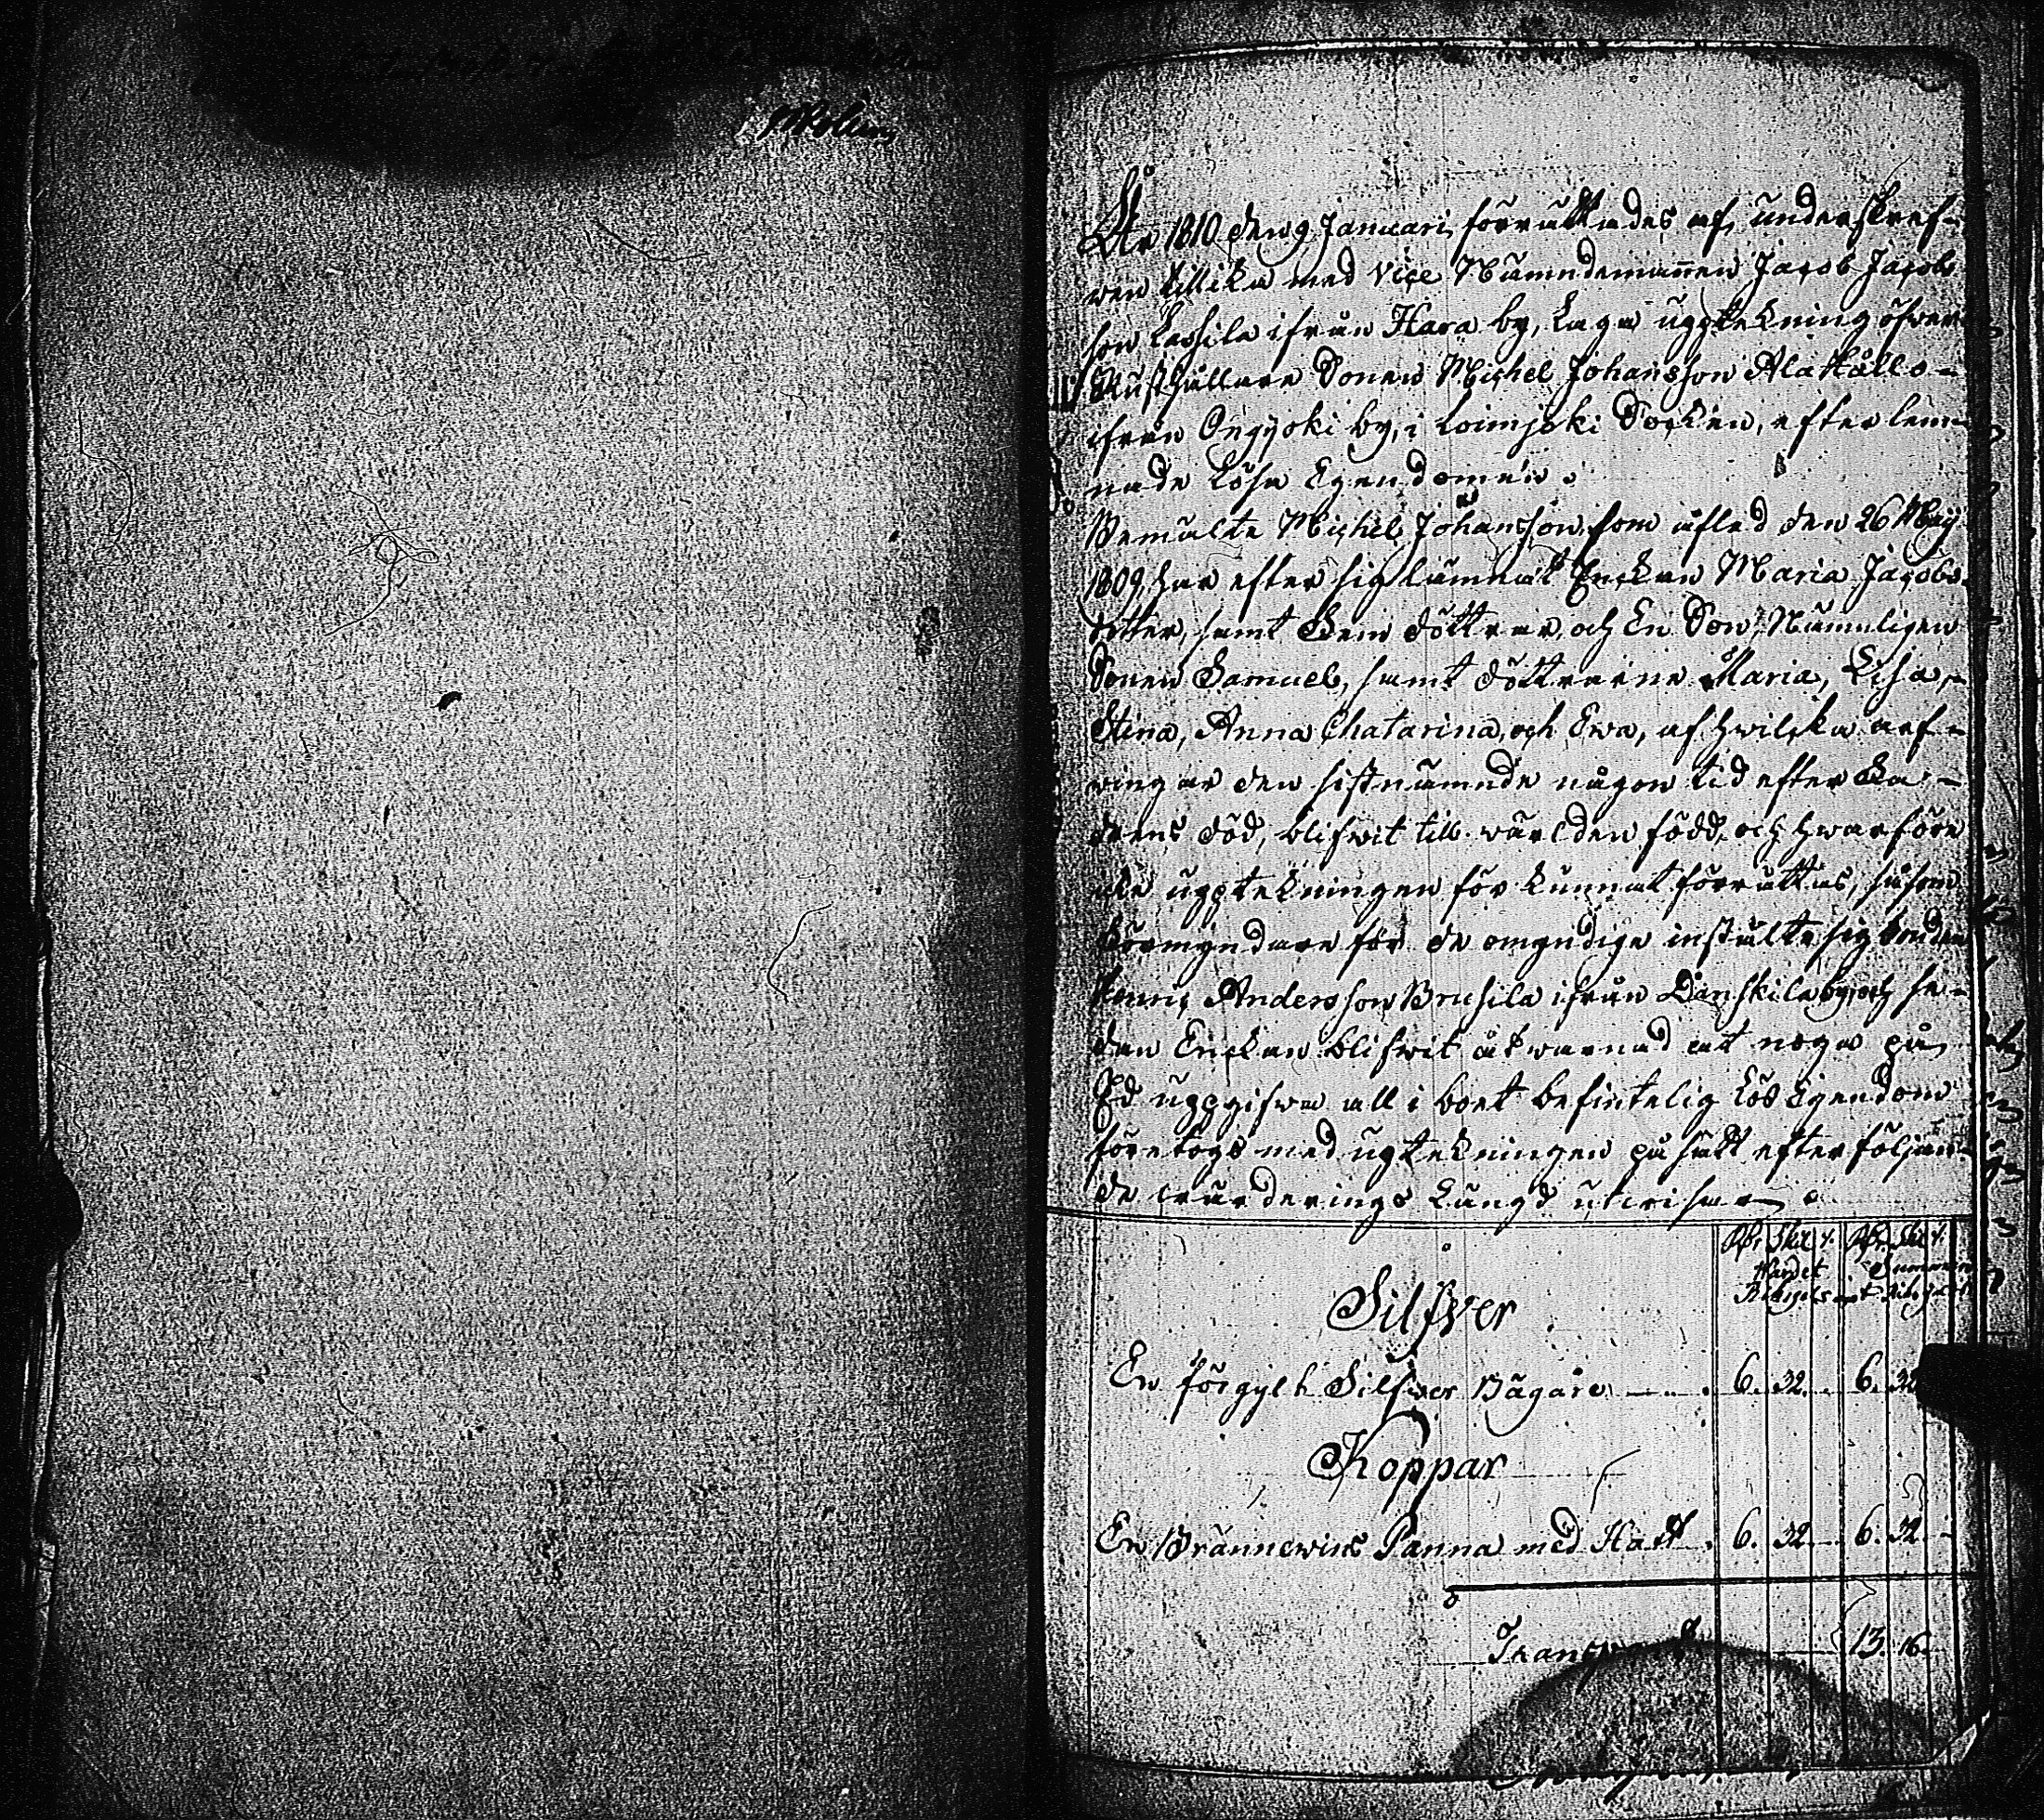 År 1810 den 9 Januari, förrättades af underskref-
wen tillika med Vice Nämndemannen Jacob Jacobs
son Kassila ifrån Hara by, Laga uppteckning öfwer
Rusthållare Sonen Michel Johansson Alatallo-
ifrån Onsjoki by, i Loimjoki Socken, efterlem-
nade Lösa Egendomen.
Bemälte Michel Johansson, som afled den 26 Maij
1809, har efter sig lämnat Enckan Maria Jacobs-
dotter, samt Fem döttrar, och En Son, Nämnligen
Sonen Samuel, samt döttrarne Maria, Lisa,
Stina, Anna Chatarina, och Ewa, af hwilcka arf-
wingar den sistnämnde någon tid efter Fa-
drens död, blifwit till wärlden född, och hwarföre
icke upptekningen för kunnat förrättas, såsom
Förmyndare för de omyndige instälte sig bonden
Henric Andersson Brusila ifrån Länskila by, och se-
dan Enckan blifwit åtwarnad att noga på
Ed uppgifwa all i boet befintelig Lös Egendom
företogs med uptekningen på sätt efterföljan-
de wärderings Längd utwisar.
Rdr Skil r. Rdr Skil r.
Wärdet Summan
Silfwer
En förgylt Silfwer Bägare 6. 32. 6. 32
Koppar
En Brännewins Panna med Hatt 6. 32. 6. 32.
Transport 13. 16.